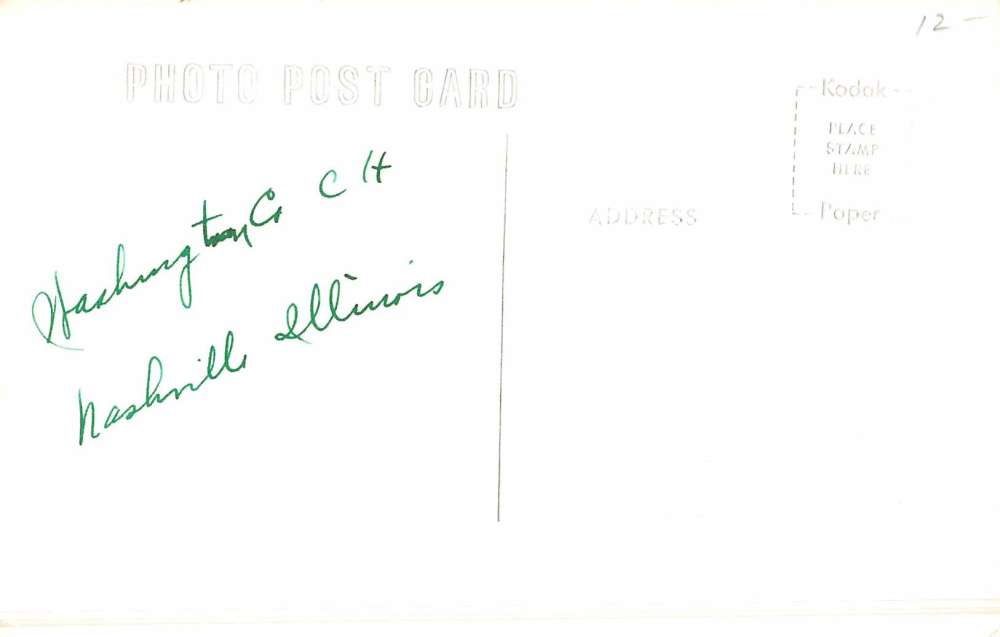 12 -
PHOTO POST CARD
Kodak
PLACE
STAMP
HERE
Paper
ADDRESS
Washington Co C H
Nashville Illinois